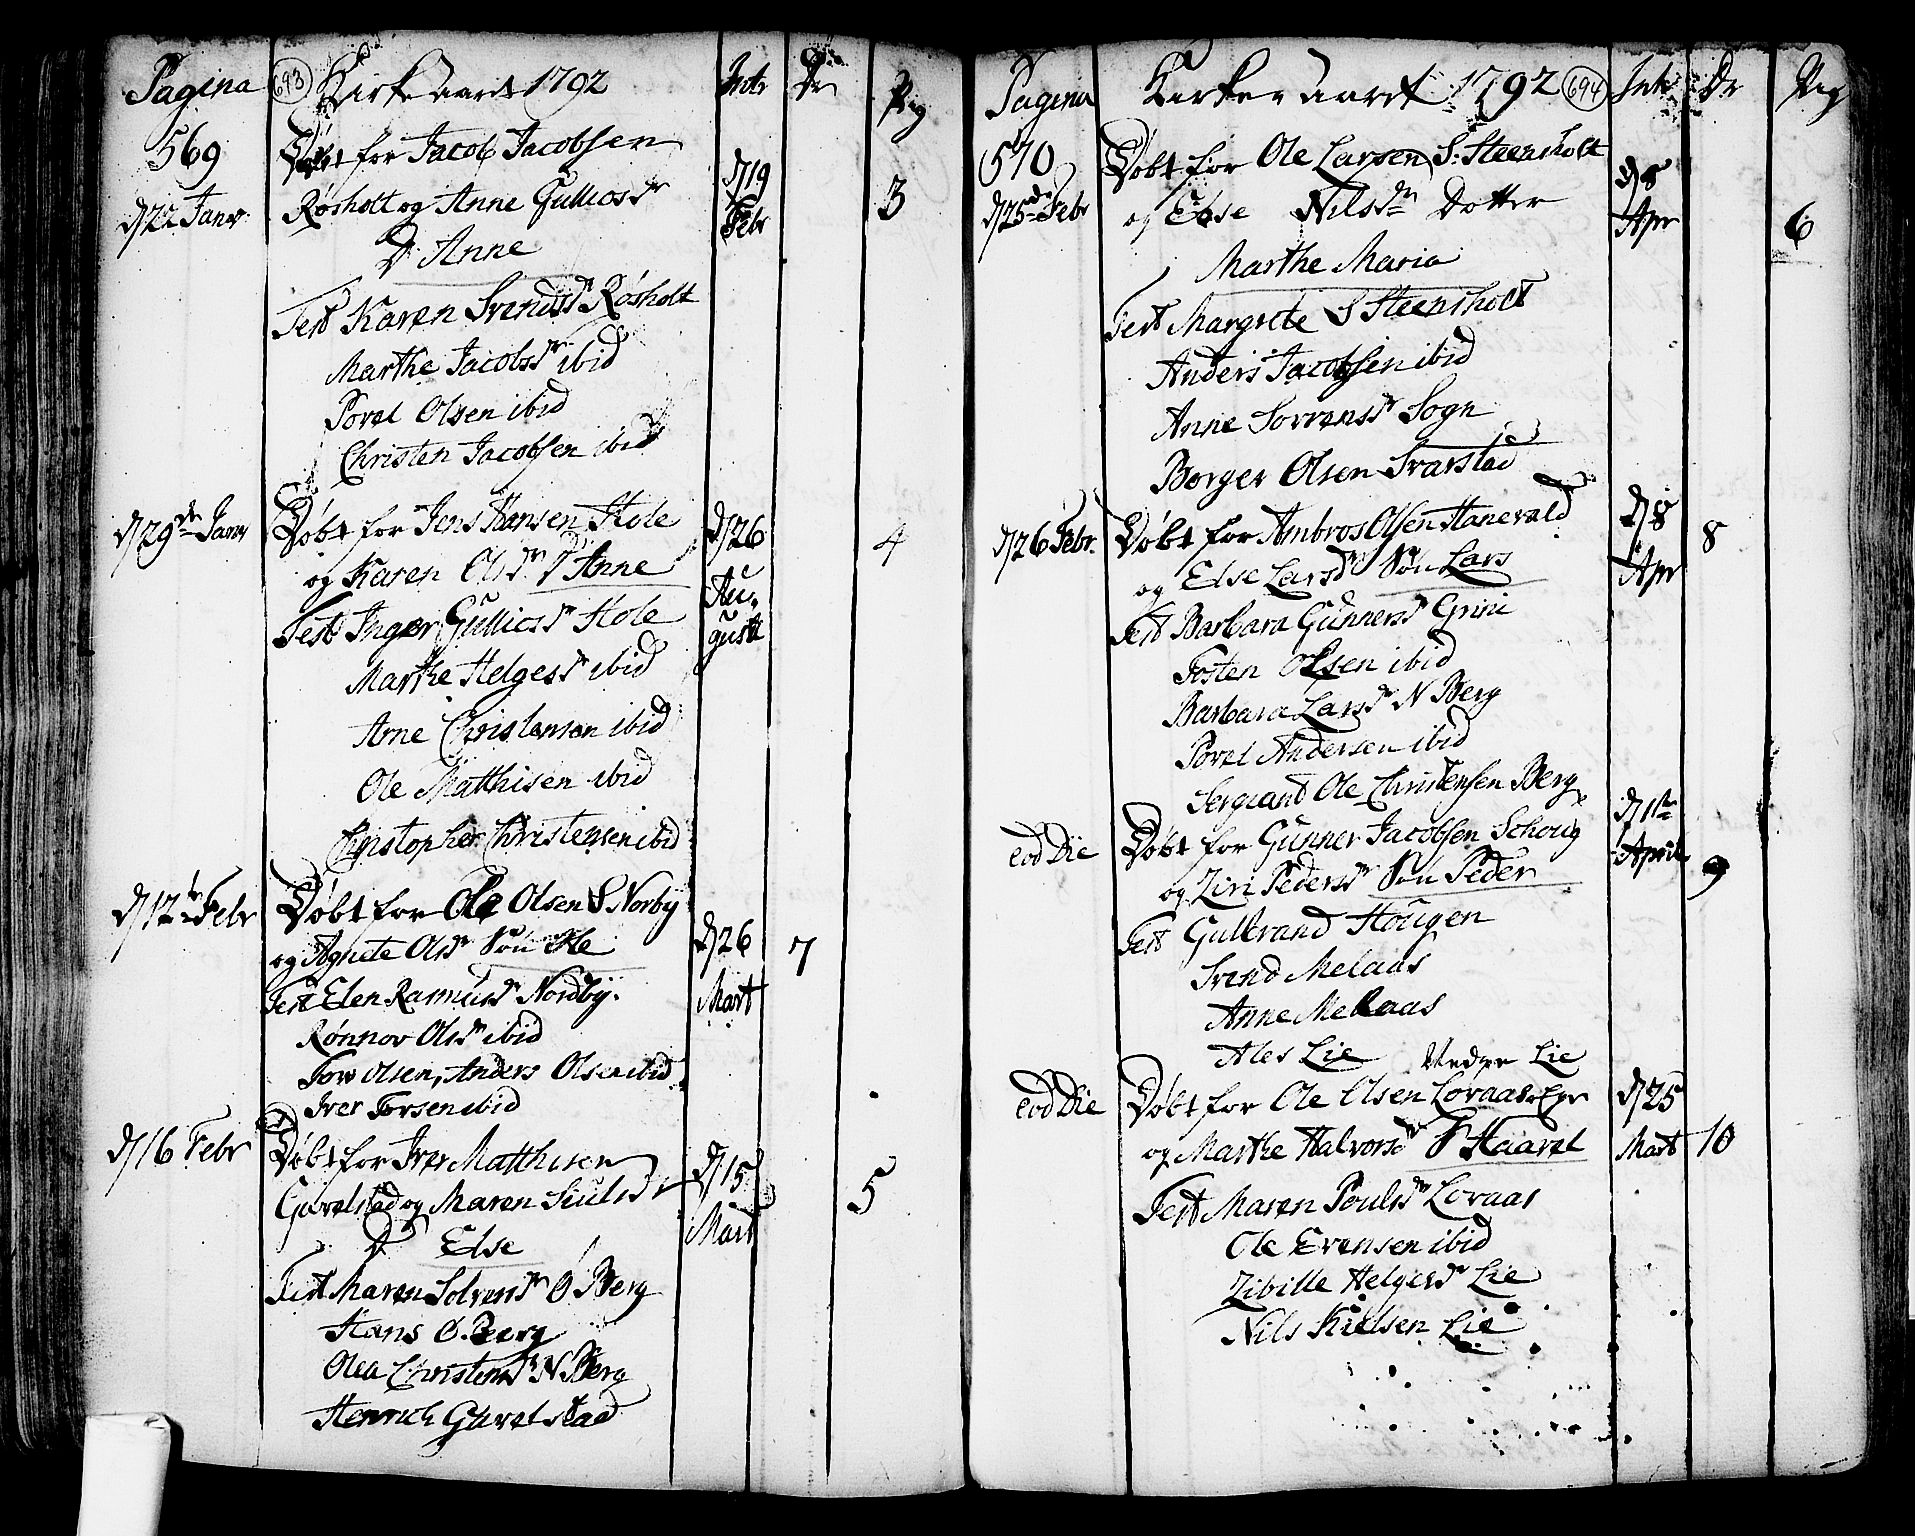 Pagina 693 Kirke aaret 1792 Intr Dr Pig
569 Døbt for Jacob Jacobsen
d 22 Janv Røsholt og Anne Gullicsdr d 19 Febr 3
D Anne
Test Karen Svendsdr Røsholt
Marthe Jacobsdr ibid
Povel Olsen ibid
Christen Jacobsen ibid
d 29de Janv Døbt for Jens Hansen Hole d 26 4
og Karen Olsdr D Anne Au,
Test Inger Gullicsdr Hole gusti
Marthe Helgesdr ibid
Arne Christensen ibid
Ole Matthisen ibid
Christopher Christensen ibid
d 12te Febr Døbt for Ole Olsen S Norby
og Agnete Olsdr Søn Ole d 26 7
Test Elen Rasmusdr Nordby. Mart
Rønnov Olsdr ibid
Tore Olsen, Anders Olsen ibid
Iver Torsen ibid
d 16 Febr Døbt for Iver Matthisen d 15
Gavelstad og Maren Siulsdr Mart 5
D Else
Test Maren Solvesdr Ø Berg
Hans Ø. Berg
Olea Christensdr N Berg
Henrich Gavelstad
Pagina Kirke aaret 1792 694 Intr Dr Pig
570 Døbt for Ole Larsen S: Steensholt d 8
d 25de Febr og Else Nilsdr Dotter Apr 6
Marthe Maria
Test Margrete S Steensholt
Anders Jacobsen ibid
Anne Sorrensdr Sogn
Borger Olsen Svarstad
d 26 Febr. Døbt for Ambros Olsen Hanevald d 8 8
og Else Larsdr Søn Lars Apr
Test Barbara Gunnersdr Grini
Tosten Olsen ibid
Barbara Larsdr N Berg
Povel Andersen ibid
Sergiand Ole Christensen Berg
eod Die Døbt for Gunner Jacobsen Schoug d 1ste April 9
og Ziri Pedersdr Søn Peder
Test Gulbrand Hougen
Svend Melaas
Anne Melaas
Ales Lie Vedre Lie
eod Die Døbt for Ole Olsen Lovaas Eyr d 25
og Marthe Halvorsdr S Haavel Mart 10
Test Maren Poulsdr Lovaas
Ole Evensen ibid
Zibille Helgesdr Lie
Nils Kielsen Lie